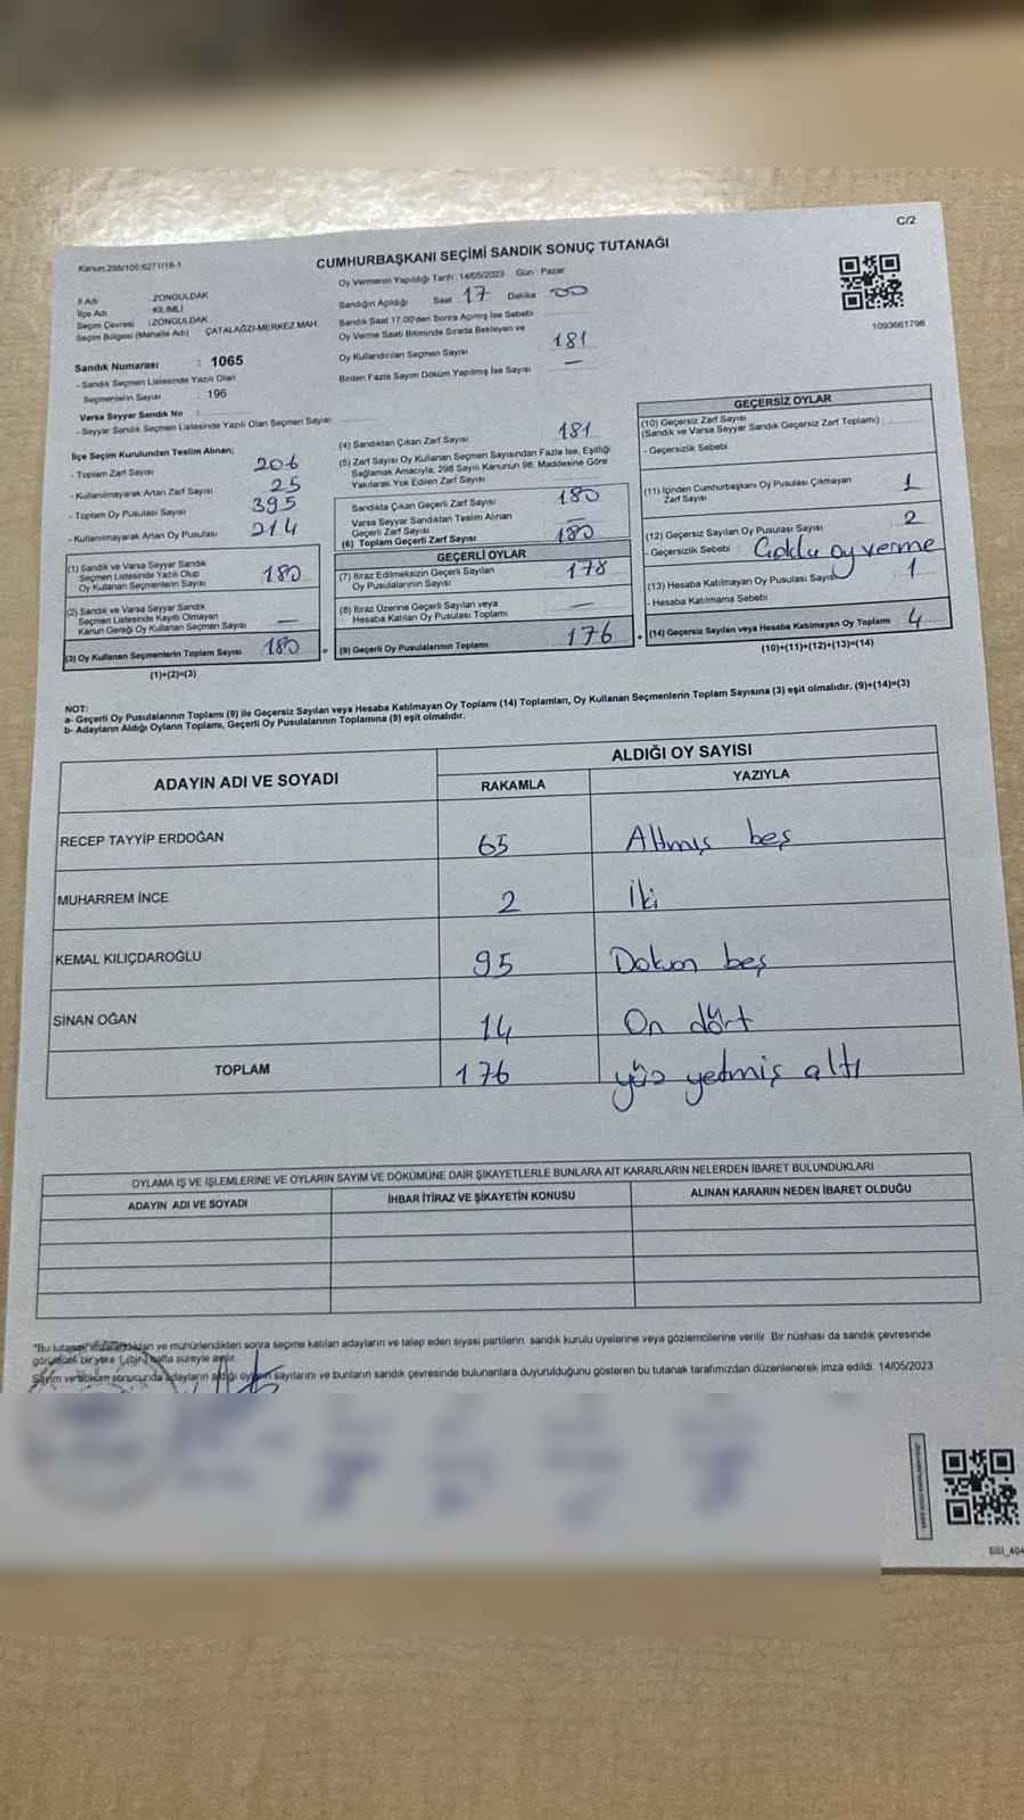 C/2
Kanun:298/106:6271/16-1
CUMHURBAŞKANI SEÇİMİ SANDIK SONUÇ TUTANAĞI
Oy Vermenin Yapıldığı Tarih :14/05/2023 Gün : Pazar
İl Adı ZONGULDAK
İlçe Adı KİLİMLİ
Seçim Çevresi :ZONGULDAK
Seçim Bölgesi (Mahalle Adı) ÇATALAĞZI-MERKEZ MAH.
Sandık Numarası : 1065
- Sandık Seçmen Listesinde Yazılı Olan
Seçmenlerin Sayısı : 196
Varsa Seyyar Sandık No :
- Seyyar Sandık Seçmen Listesinde Yazılı Olan Seçmen Sayısı
Sandığın Açıldığı Saat 17 Dakika 00
Sandık Saat 17.00'den Sonra Açılmış İse Sebebi
Oy Verme Saati Bitiminde Sırada Bekleyen ve
Oy Kullandırılan Seçmen Sayısı 181
Birden Fazla Sayım Döküm Yapılmış İse Sayısı —
1093661796
İlçe Seçim Kurulundan Teslim Alınan;
- Toplam Zarf Sayısı 206
- Kullanılmayarak Artan Zarf Sayısı 25
- Toplam Oy Pusulası Sayısı 395
- Kullanılmayarak Artan Oy Pusulası 214
(1) Sandık ve Varsa Seyyar Sandık
Seçmen Listesinde Yazılı Olup
Oy Kullanan Seçmenlerin Sayısı 180
(2) Sandık ve Varsa Seyyar Sandık
Seçmen Listesinde Kayıtlı Olmayan
Kanun Gereği Oy Kullanan Seçmen Sayısı —
(3) Oy Kullanan Seçmenlerin Toplam Sayısı 180
(1)+(2)=(3)
(4) Sandıktan Çıkan Zarf Sayısı 181
(5) Zarf Sayısı Oy Kullanan Seçmen Sayısından Fazla İse, Eşitliği
Sağlamak Amacıyla, 298 Sayılı Kanunun 98. Maddesine Göre
Yakılarak Yok Edilen Zarf Sayısı
Sandıkta Çıkan Geçerli Zarf Sayısı 180
Varsa Seyyar Sandıktan Teslim Alınan
Geçerli Zarf Sayısı —
(6) Toplam Geçerli Zarf Sayısı 180
GEÇERLİ OYLAR
(7) İtiraz Edilmeksizin Geçerli Sayılan
Oy Pusulalarının Sayısı 178
(8) İtiraz Üzerine Geçerli Sayılan veya
Hesaba Katılan Oy Pusulası Toplamı —
(9) Geçerli Oy Pusulalarının Toplamı 176
GEÇERSİZ OYLAR
(10) Geçersiz Zarf Sayısı
(Sandık ve Varsa Seyyar Sandık Geçersiz Zarf Toplamı)
- Geçersizlik Sebebi
(11) İçinden Cumhurbaşkanı Oy Pusulası Çıkmayan
Zarf Sayısı 1
(12) Geçersiz Sayılan Oy Pusulası Sayısı 2
- Geçersizlik Sebebi Çoklu oy verme
(13) Hesaba Katılmayan Oy Pusulası Sayısı 1
- Hesaba Katılmama Sebebi
(14) Geçersiz Sayılan veya Hesaba Katılmayan Oy Toplamı 4
(10)+(11)+(12)+(13)=(14)
NOT:
a- Geçerli Oy Pusulalarının Toplamı (9) ile Geçersiz Sayılan veya Hesaba Katılmayan Oy Toplamı (14) Toplamları, Oy Kullanan Seçmenlerin Toplam Sayısına (3) eşit olmalıdır. (9)+(14)=(3)
b- Adayların Aldığı Oyların Toplamı, Geçerli Oy Pusulalarının Toplamına (9) eşit olmalıdır.
ADAYIN ADI VE SOYADI
ALDIĞI OY SAYISI
RAKAMLA YAZIYLA
RECEP TAYYİP ERDOĞAN 65 Altmış beş
MUHARREM İNCE 2 İki
KEMAL KILIÇDAROĞLU 95 Doksan beş
SİNAN OĞAN 14 On dört
TOPLAM 176 yüz yetmiş altı
OYLAMA İŞ VE İŞLEMLERİNE VE OYLARIN SAYIM VE DÖKÜMÜNE DAİR ŞİKAYETLERLE BUNLARA AİT KARARLARIN NELERDEN İBARET BULUNDUKLARI
ADAYIN ADI VE SOYADI İHBAR İTİRAZ VE ŞİKAYETİN KONUSU ALINAN KARARIN NEDEN İBARET OLDUĞU
"Bu ve mühürlendikten sonra seçime katılan adayların ve talep eden siyasi partilerin sandık kurulu üyelerine veya gözlemcilerine verilir. Bir nüshası da sandık çevresinde
görülecek bir yere 1 (bir) hafta süreyle asılır.
Sayım ve döküm sonucunda adayların aldığı oyların sayılarını ve bunların sandık çevresinde bulunanlara duyurulduğunu gösteren bu tutanak tarafımızdan düzenlenerek imza edildi. 14/05/2023